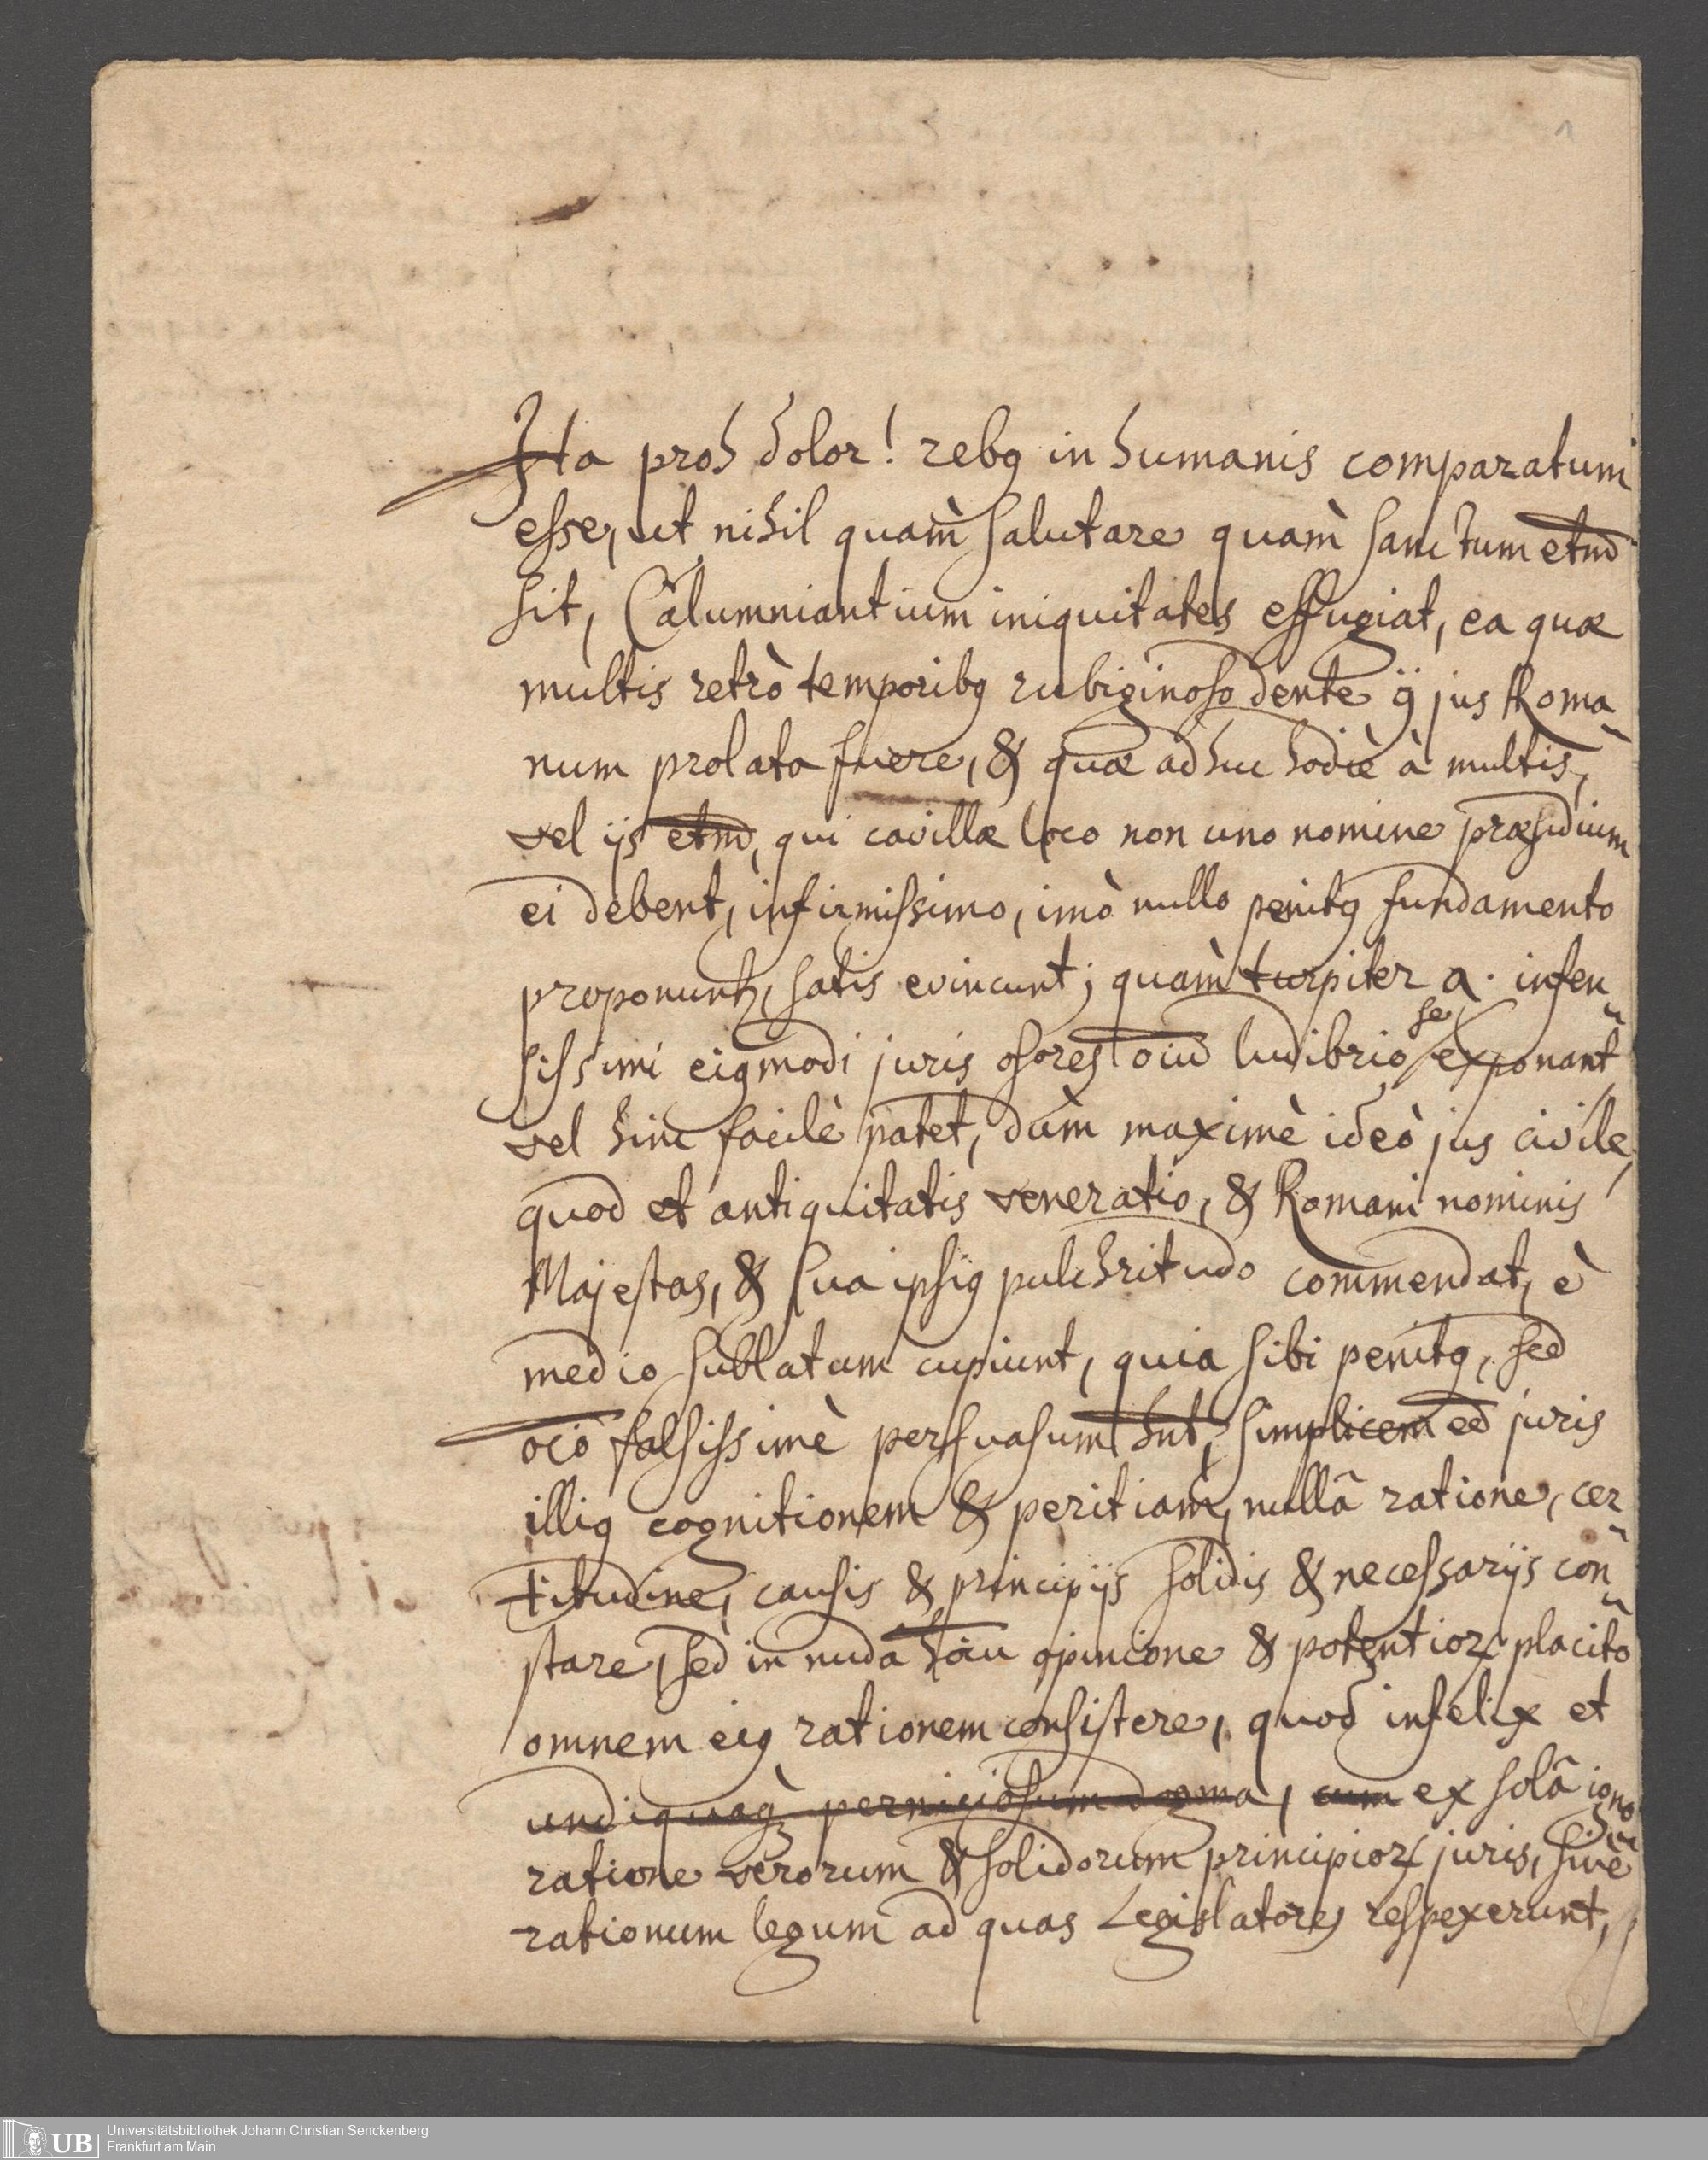 1
Ita proh dolor! rebꝯ in humanis comparatum
esse, ut nihil quam̀ salutare quam̀ sanctum etm̄
sit, Calumniantium iniquitates effugiat, ea quæ
multis retrò temporibꝯ rubiginoso dente jus Roma-
num prolata fuere, & quæ adhuc hodiè à multis,
vel ijs etm̄, qui cavillæ loco non uno nomine præsidium
ei debent, infirmissimo, imò nullo penitꝯ fundamento
proponunt, satis evincunt; quam̀ turpiter a. infen-
sissimi eiꝯmodi juris osores oiū ludibrio se exponant
vel hinc facilè patet, dum̀ maximè ideò jus civile,
quod et antiquitatis veneratio, & Romani nominis
Majestas, & sua ipsiꝯ pulchritudo commendat, è
medio sublatum cupiunt, quia sibi penitꝯ, sed
oiō falsissimè persuasum hnt, simplicem eē juris
illiꝯ cognitionem & peritiam, nullâ ratione, cer-
titudine, causis & principijs solidis & necessarijs con-
stare, sed in nuda hoiū opinione & potentioꝝ placito
omnem eiꝯ rationem consistere, quod infelix et
undiquaqꝫ perniciosum dogma, cum ex solâ igno-
ratione verorum & solidorum principioꝝ juris, sivè
rationum legum ad quas Legislatores respexerunt,
UB
Universitätsbibliothek Johann Christian Senckenberg
Frankfurt am Main